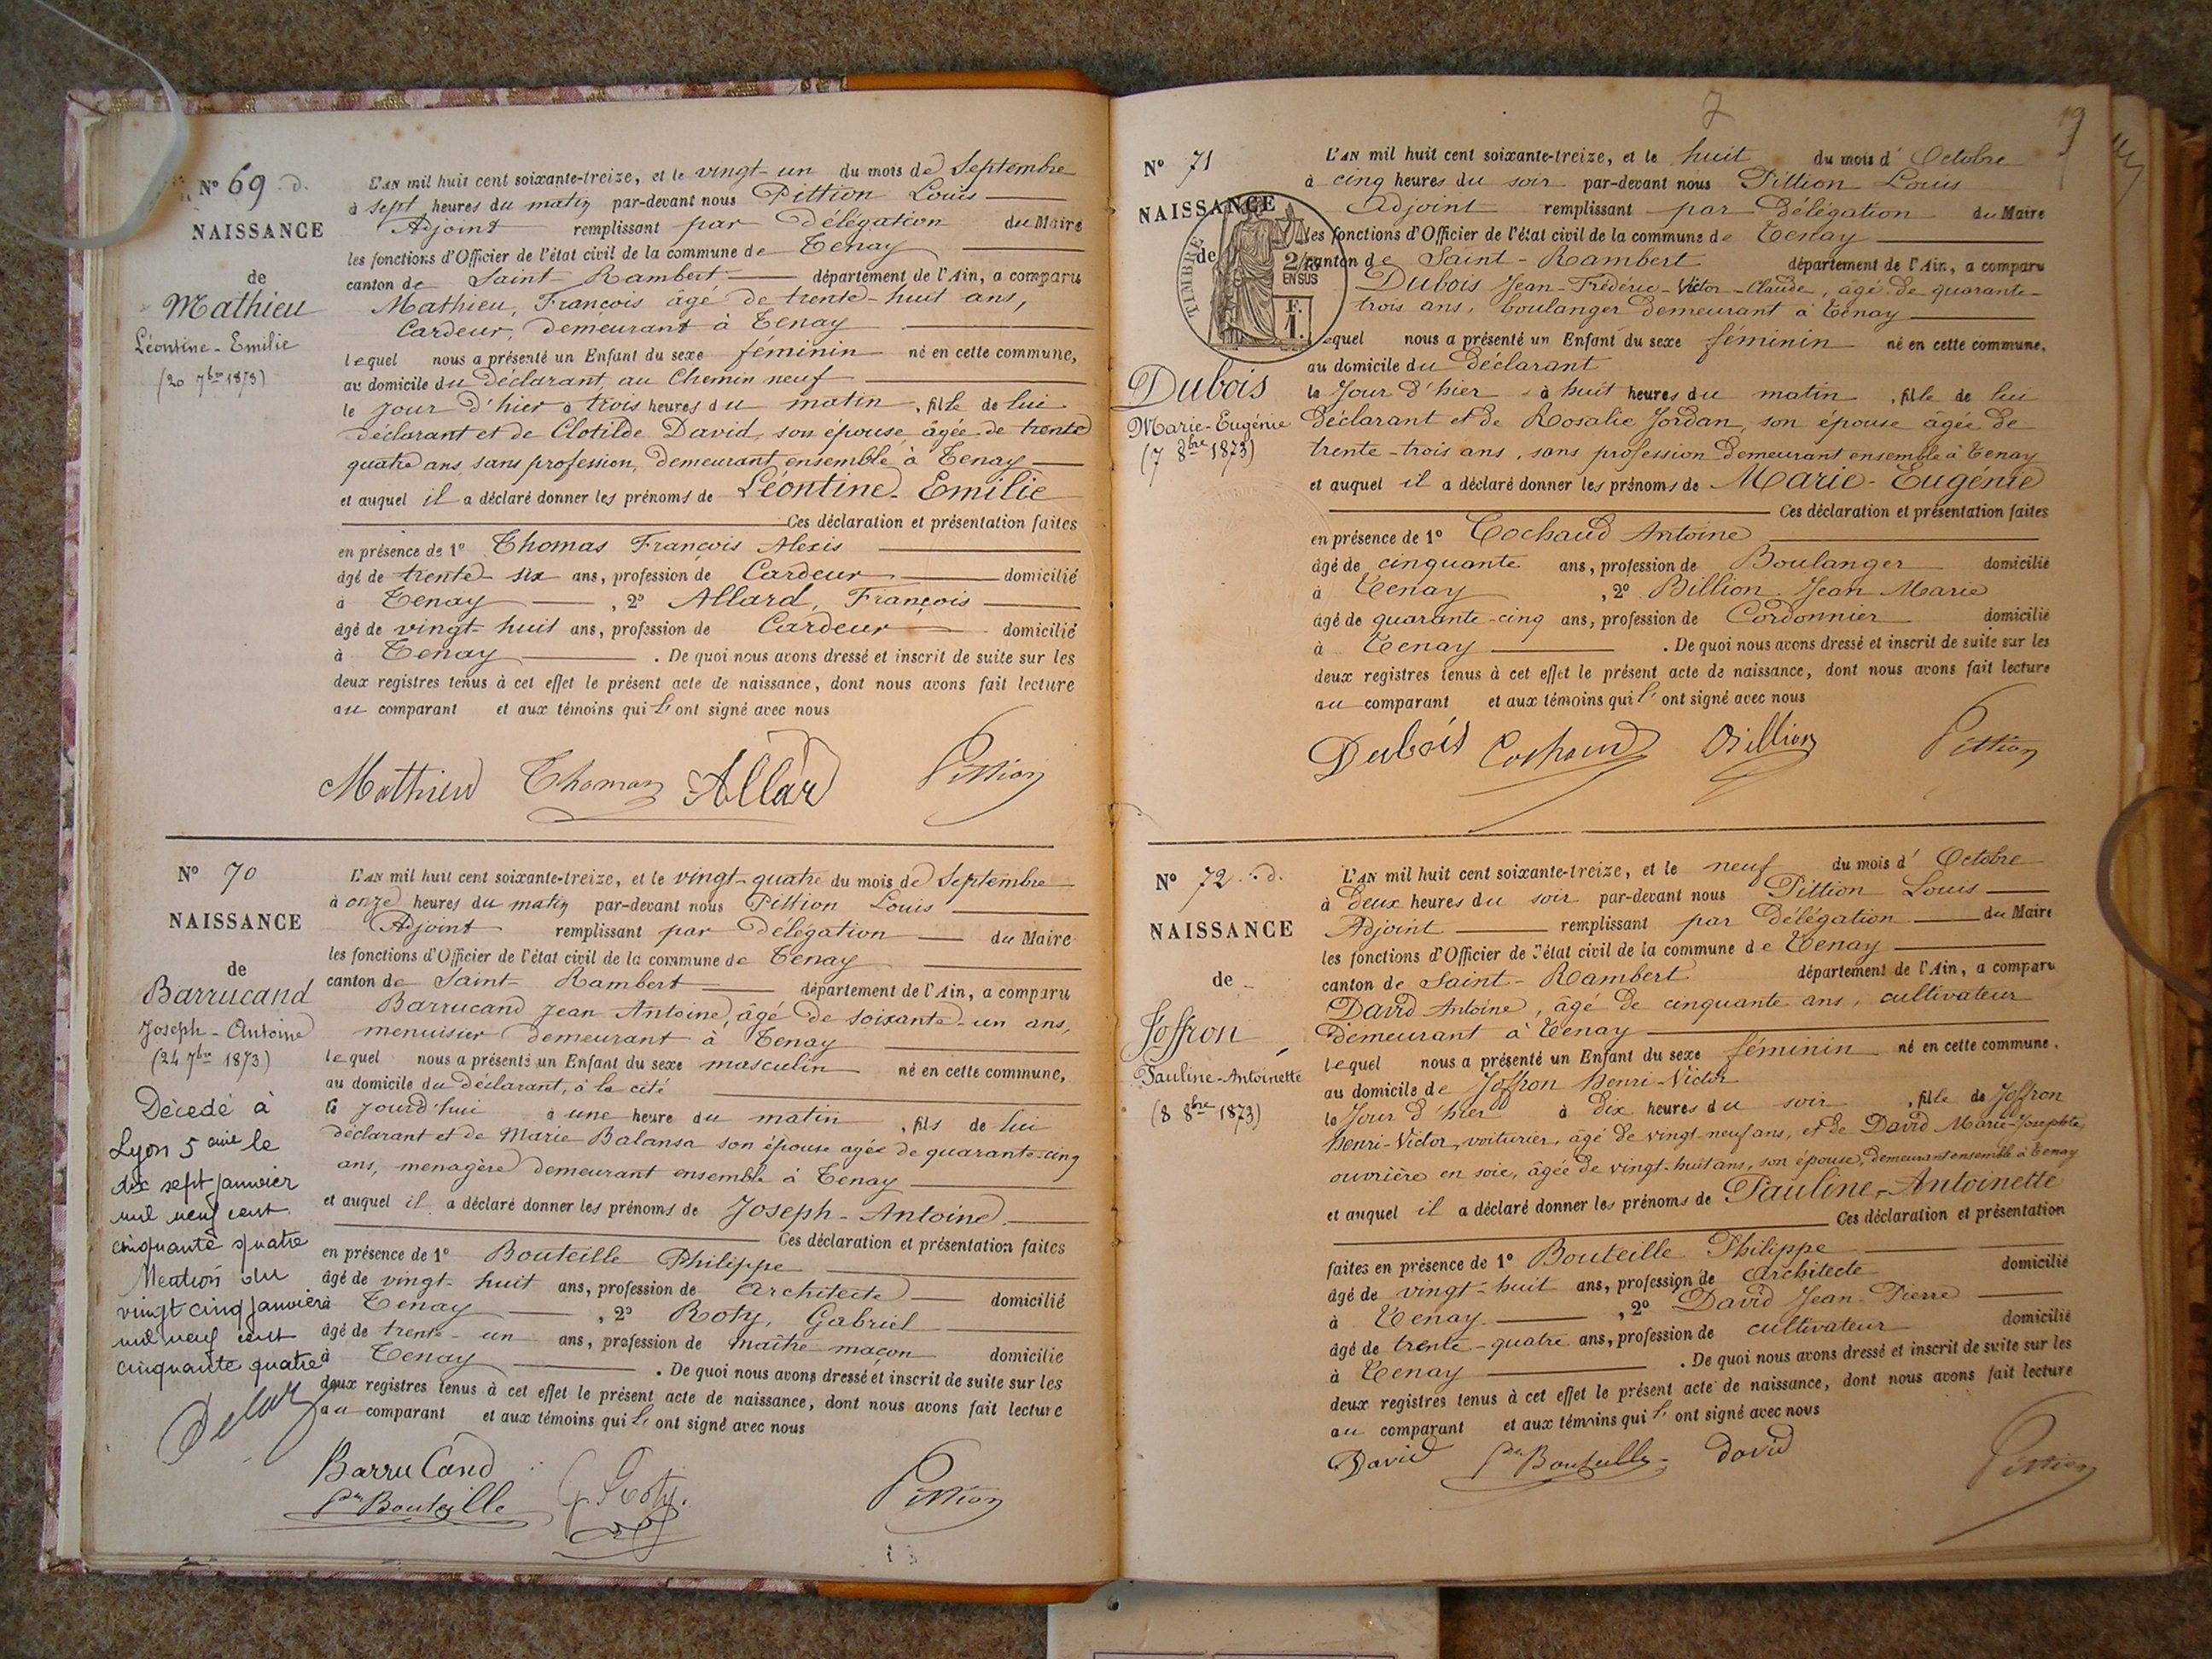 N° 69 d.
NAISSANCE
de
Mathieu
Léontine-Emilie
(20 7bre 1873)
L'AN mil huit cent soixante-treize, et le vingt-un du mois de Septembre
à sept heures du matin par-devant nous Pittion Louis
Adjoint remplissant par délégation du Maire
les fonctions d'Officier de l'état civil de la commune de Tenay
canton de Saint-Rambert département de l'Ain, a comparu
Mathieu, François âgé de trente-huit ans,
Cardeur, demeurant à Tenay
lequel nous a présenté un Enfant du sexe féminin né en cette commune,
au domicile du Déclarant, au Chemin neuf
le jour d'hier à trois heures du matin, fille de lui
déclarant et de Clotilde David, son épouse âgée de trente
quatre ans, sans profession, demeurant ensemble à Tenay
et auquel il a déclaré donner les prénoms de Léontine-Emilie
Ces déclaration et présentation faites
en présence de 1° Thomas François Alexis
âgé de trente-six ans, profession de Cardeur domicilié
à Tenay, 2° Allard, François
âgé de vingt-huit ans, profession de Cardeur domicilié
à Tenay. De quoi nous avons dressé et inscrit de suite sur les
deux registres tenus à cet effet le présent acte de naissance, dont nous avons fait lecture
au comparant et aux témoins qui l' ont signé avec nous
Mathieu Thomas Allard Pittion
N° 70
NAISSANCE
de
Barrucand
Joseph-Antoine
(24 7bre 1873)
Décédé à
Lyon 5eme le
dix sept janvier
mil neuf cent
cinquante quatre
Mention du
vingt cinq janvier
mil neuf cent
cinquante quatre
L'AN mil huit cent soixante-treize, et le vingt-quatre du mois de Septembre
à onze heures du matin par-devant nous Pittion Louis
Adjoint remplissant par délégation du Maire
les fonctions d'Officier de l'état civil de la commune de Tenay
canton de Saint-Rambert département de l'Ain, a comparu
Barrucand Jean Antoine, âgé de soixante-un ans,
menuisier demeurant à Tenay
lequel nous a présenté un Enfant du sexe masculin né en cette commune,
au domicile du déclarant, à la cité
le jourd'hui à une heure du matin, fils de lui
déclarant et de Marie Balansa son épouse agée de quarante-cinq
ans, menagère demeurant ensemble à Tenay
et auquel il a déclaré donner les prénoms de Joseph-Antoine
Ces déclaration et présentation faites
en présence de 1° Bouteille Philippe
âgé de vingt-huit ans, profession de Architecte domicilié
à Tenay, 2° Roty, Gabriel
âgé de trente-un ans, profession de maître maçon domicilié
à Tenay. De quoi nous avons dressé et inscrit de suite sur les
deux registres tenus à cet effet le présent acte de naissance, dont nous avons fait lecture
au comparant et aux témoins qui l' ont signé avec nous
BarruCand
Ph Bouteille G Roty Pittion
7
19
N° 71
NAISSANCE
de
TIMBRE
2/10
EN SUS
F.
1.
Dubois
Marie-Eugénie
(7 8bre 1873)
L'AN mil huit cent soixante-treize, et le huit du mois d' Octobre
à cinq heures du soir par-devant nous Pittion Louis
Adjoint remplissant par Délégation du Maire
les fonctions d'Officier de l'état civil de la commune de Tenay
canton de Saint-Rambert département de l'Ain, a comparu
Dubois Jean-Frédéric-Victor-Claude, âgé de quarante-
trois ans, boulanger demeurant à Tenay
lequel nous a présenté un Enfant du sexe féminin né en cette commune,
au domicile du Déclarant
le Jour d'hier à huit heures du matin, fille de lui
Déclarant et de Rosalie Jordan, son épouse âgée de
trente-trois ans, sans profession demeurant ensemble à Tenay
et auquel il a déclaré donner les prénoms de Marie-Eugénie
Ces déclaration et présentation faites
en présence de 1° Cochaud Antoine
âgé de cinquante ans, profession de Boulanger domicilié
à Tenay, 2° Billion Jean Marie
âgé de quarante-cinq ans, profession de Cordonnier domicilié
à Tenay. De quoi nous avons dressé et inscrit de suite sur les
deux registres tenus à cet effet le présent acte de naissance, dont nous avons fait lecture
au comparant et aux témoins qui l' ont signé avec nous
Dubois Cochaud Billion Pittion
N° 72 d.
NAISSANCE
de
Joffron
Pauline-Antoinette
(8 8bre 1873)
L'AN mil huit cent soixante-treize, et le neuf du mois d' Octobre
à deux heures du soir par-devant nous Pittion Louis
Adjoint remplissant par délégation du Maire
les fonctions d'Officier de l'état civil de la commune de Tenay
canton de Saint-Rambert département de l'Ain, a comparu
David Antoine, âgé de cinquante ans, cultivateur
demeurant à Tenay
lequel nous a présenté un Enfant du sexe féminin né en cette commune,
au domicile de Joffron Henri-Victor
le Jour d'hier à dix heures du soir, fille de Joffron
Henri-Victor, voiturier, âgé de vingt-neuf ans, et de David Marie-Josephte,
ouvrière en soie, âgée de vingt-huit ans, son épouse, demeurant ensemble à Tenay
et auquel il a déclaré donner les prénoms de Pauline-Antoinette
Ces déclaration et présentation
faites en présence de 1° Bouteille Philippe
âgé de vingt-huit ans, profession de Architecte domicilié
à Tenay, 2° David Jean-Pierre
âgé de trente-quatre ans, profession de cultivateur domicilié
à Tenay. De quoi nous avons dressé et inscrit de suite sur les
deux registres tenus à cet effet le présent acte de naissance, dont nous avons fait lecture
au comparant et aux témoins qui l' ont signé avec nous
David Ph Bouteille David Pittion